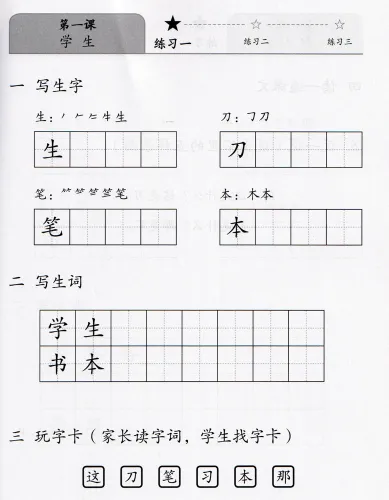 第一课
学生
★ ☆ ☆
练习一 练习二 练习三
一 写生字
生: 丿 𠂉 生 刀: 𠃌 刀
生 刀
笔: 笔 本: 木 本
笔 本
二 写生词
学生
书本
三 玩字卡（家长读字词，学生找字卡）
这 刀 笔 习 本 那